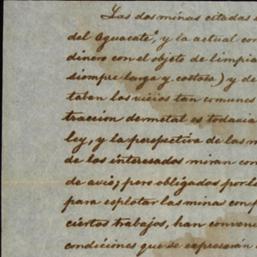 Las dos minas citadas
del Aguacate, y la actual con
dinero con el objeto de limpia
siempre larga y costosa) y de
taban los vicios tan comunes
traccion de metal es todavia
ley, y la perspectiva de las m
de los interesados miran con
de avio; pero obligados por lo
para esplotar las minas con p
ciertos trabajos, han conveni
condiciones que se expresarán